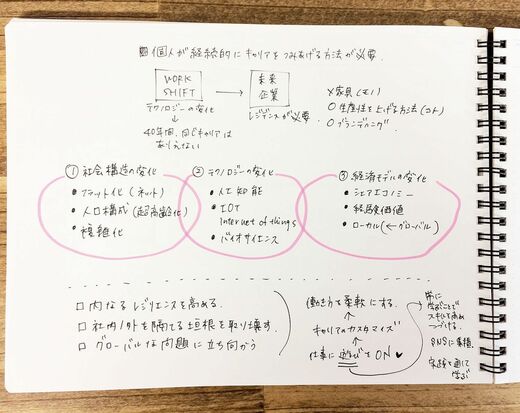 個人が継続的にキャリアをつみあげる方法が必要.
WORK
SHIFT
未来
企業
×家具(モノ)
テクノロジーの変化
レジデンスが必要
○生産性を上げる方法(コト)
○ブランディング
↓
40年間、同じキャリアは
ありえない
①社会構造の変化
②テクノロジーの変化
③経済モデルの変化
•フラット化(ネット)
•人工知能
•シェアエコノミー
•人口構成(超高齢化)
•IOT
Internet of things
•経験価値
•複雑化
•バイオサイエンス
•ローカル(←グローバル)
□内なるレジリエンスを高める.
□社内/外を隔てる垣根を取り壊す.
□グローバルな問題に立ち向かう
働き方を柔軟にする.
↑
キャリアのカスタマイズ
↑
仕事に遊びをON
常に
学ぶことで
スキルを高め
つづける.
SNSに蓄積.
実践を通じて
学ぶ